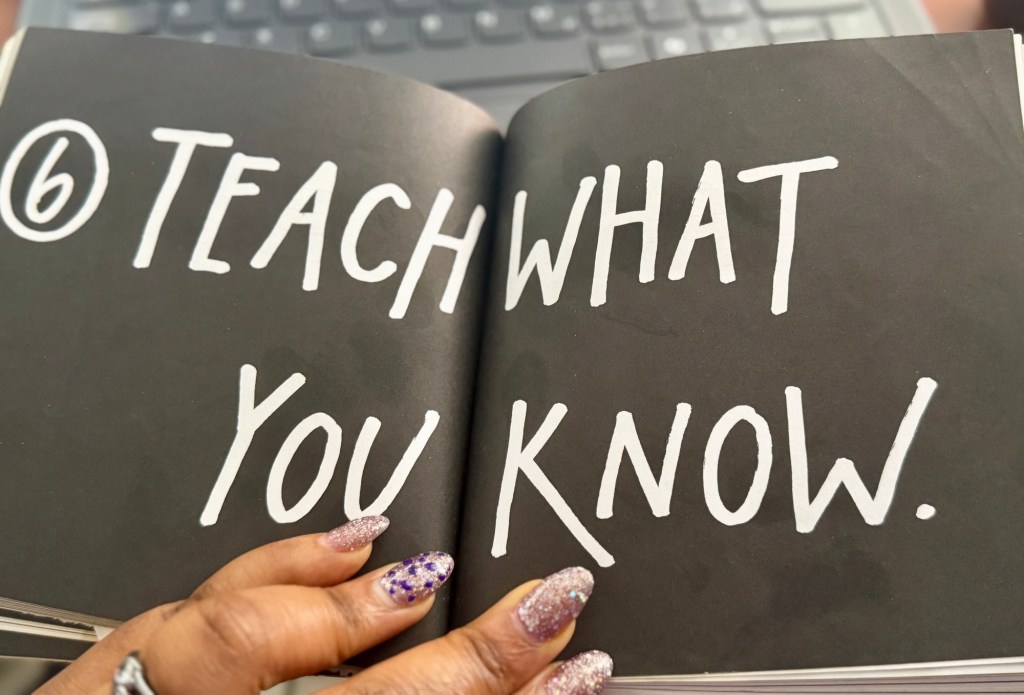 ⑥ TEACH WHAT
YOU KNOW.